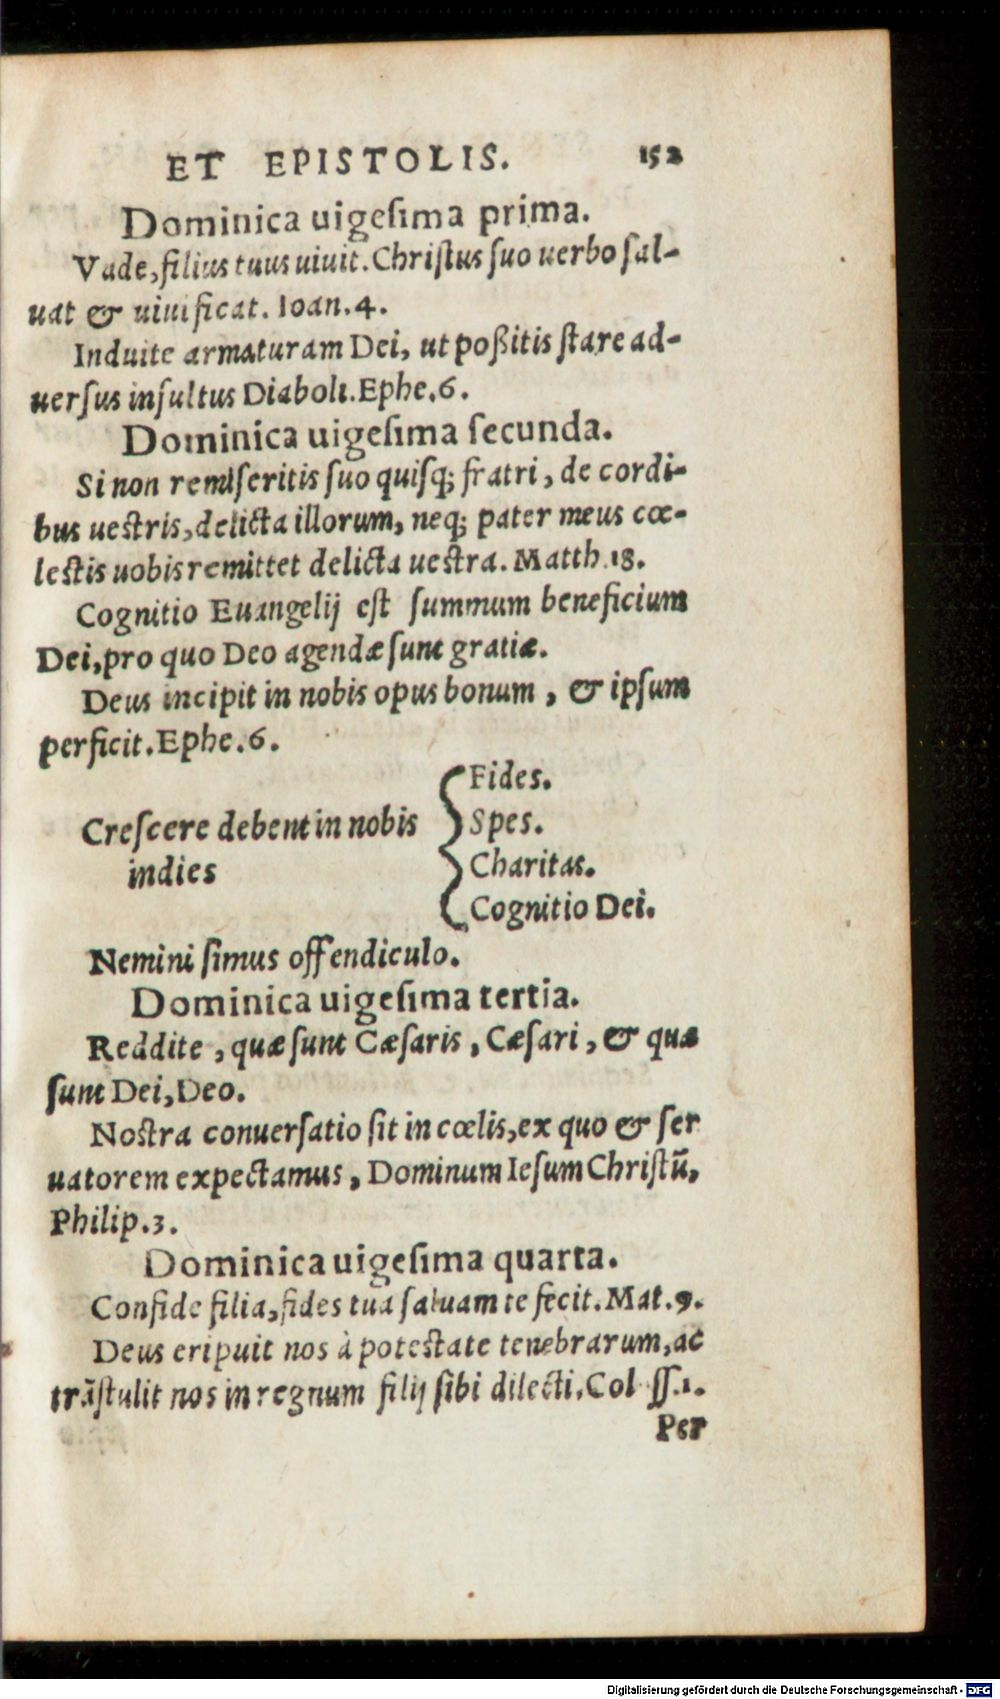 ET EPISTOLIS. 152
Dominica uigeſima prima.
Vade, filius tuus uiuit. Chriſtus ſuo uerbo ſal-
uat & uiuificat. Ioan. 4.
Induite armaturam Dei, ut poßitis ſtare ad-
uerſus inſultus Diaboli. Ephe. 6.
Dominica uigeſima ſecunda.
Si non remiſeritis ſuo quiſq; fratri, de cordi-
bus ueſtris, delicta illorum, neq; pater meus cœ-
leſtis uobis remittet delicta ueſtra. Matth. 18.
Cognitio Euangelij eſt ſummum beneficium
Dei, pro quo Deo agendæ ſunt gratiæ.
Deus incipit in nobis opus bonum, & ipſum
perficit. Ephe. 6.
Fides.
Creſcere debent in nobis Spes.
indies Charitas.
Cognitio Dei.
Nemini ſimus offendiculo.
Dominica uigeſima tertia.
Reddite, quæ ſunt Cæſaris, Cæſari, & quæ
ſunt Dei, Deo.
Noſtra conuerſatio ſit in cœlis, ex quo & ſer
uatorem expectamus, Dominum Ieſum Chriſtū,
Philip. 3.
Dominica uigeſima quarta.
Confide filia, fides tua ſaluam te fecit. Mat. 9.
Deus eripuit nos à poteſtate tenebrarum, ac
trāſtulit nos in regnum filij ſibi dilecti. Col ſſ. 1.
Per
Digitalisierung gefördert durch die Deutsche Forschungsgemeinschaft - DFG